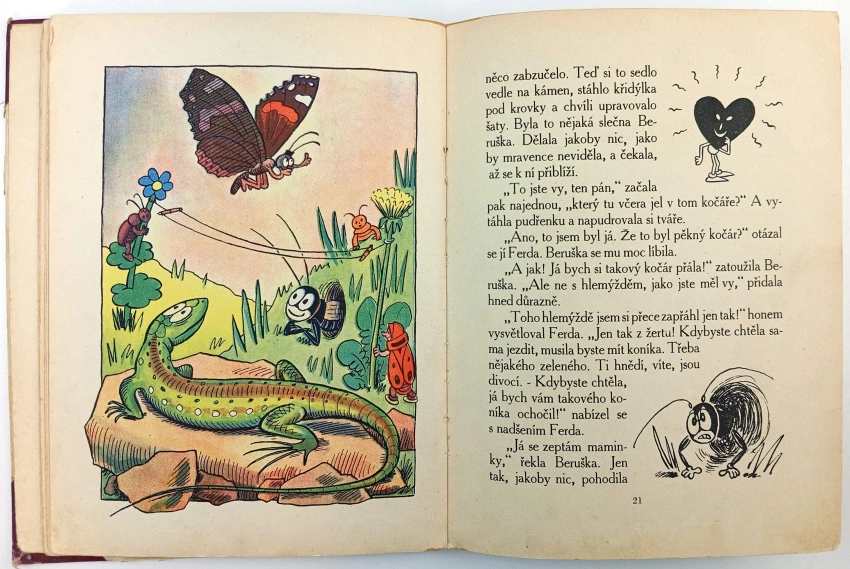 něco zabzučelo. Teď si to sedlo
vedle na kámen, stáhlo křidýlka
pod krovky a chvíli upravovalo
šaty. Byla to nějaká slečna Be-
ruška. Dělala jakoby nic, jako
by mravence neviděla, a čekala,
až se k ní přiblíží.
„To jste vy, ten pán,“ začala
pak najednou, „který tu včera jel v tom kočáře?“ A vy-
táhla pudřenku a napudrovala si tváře.
„Ano, to jsem byl já. Že to byl pěkný kočár?“ otázal
se jí Ferda. Beruška se mu moc líbila.
„A jak! Já bych si takový kočár přála!“ zatoužila Be-
ruška. „Ale ne s hlemýžděm, jako jste měl vy,“ přidala
hned důrazně.
„Toho hlemýždě jsem si přece zapřáhl jen tak!“ honem
vysvětloval Ferda. „Jen tak z žertu! Kdybyste chtěla sa-
ma jezdit, musila byste mít koníka. Třeba
nějakého zeleného. Ti hnědí, víte, jsou
divocí. - Kdybyste chtěla,
já bych vám takového ko-
níka ochočil!“ nabízel se
s nadšením Ferda.
„Já se zeptám mamin-
ky,“ řekla Beruška. Jen
tak, jakoby nic, pohodila
21